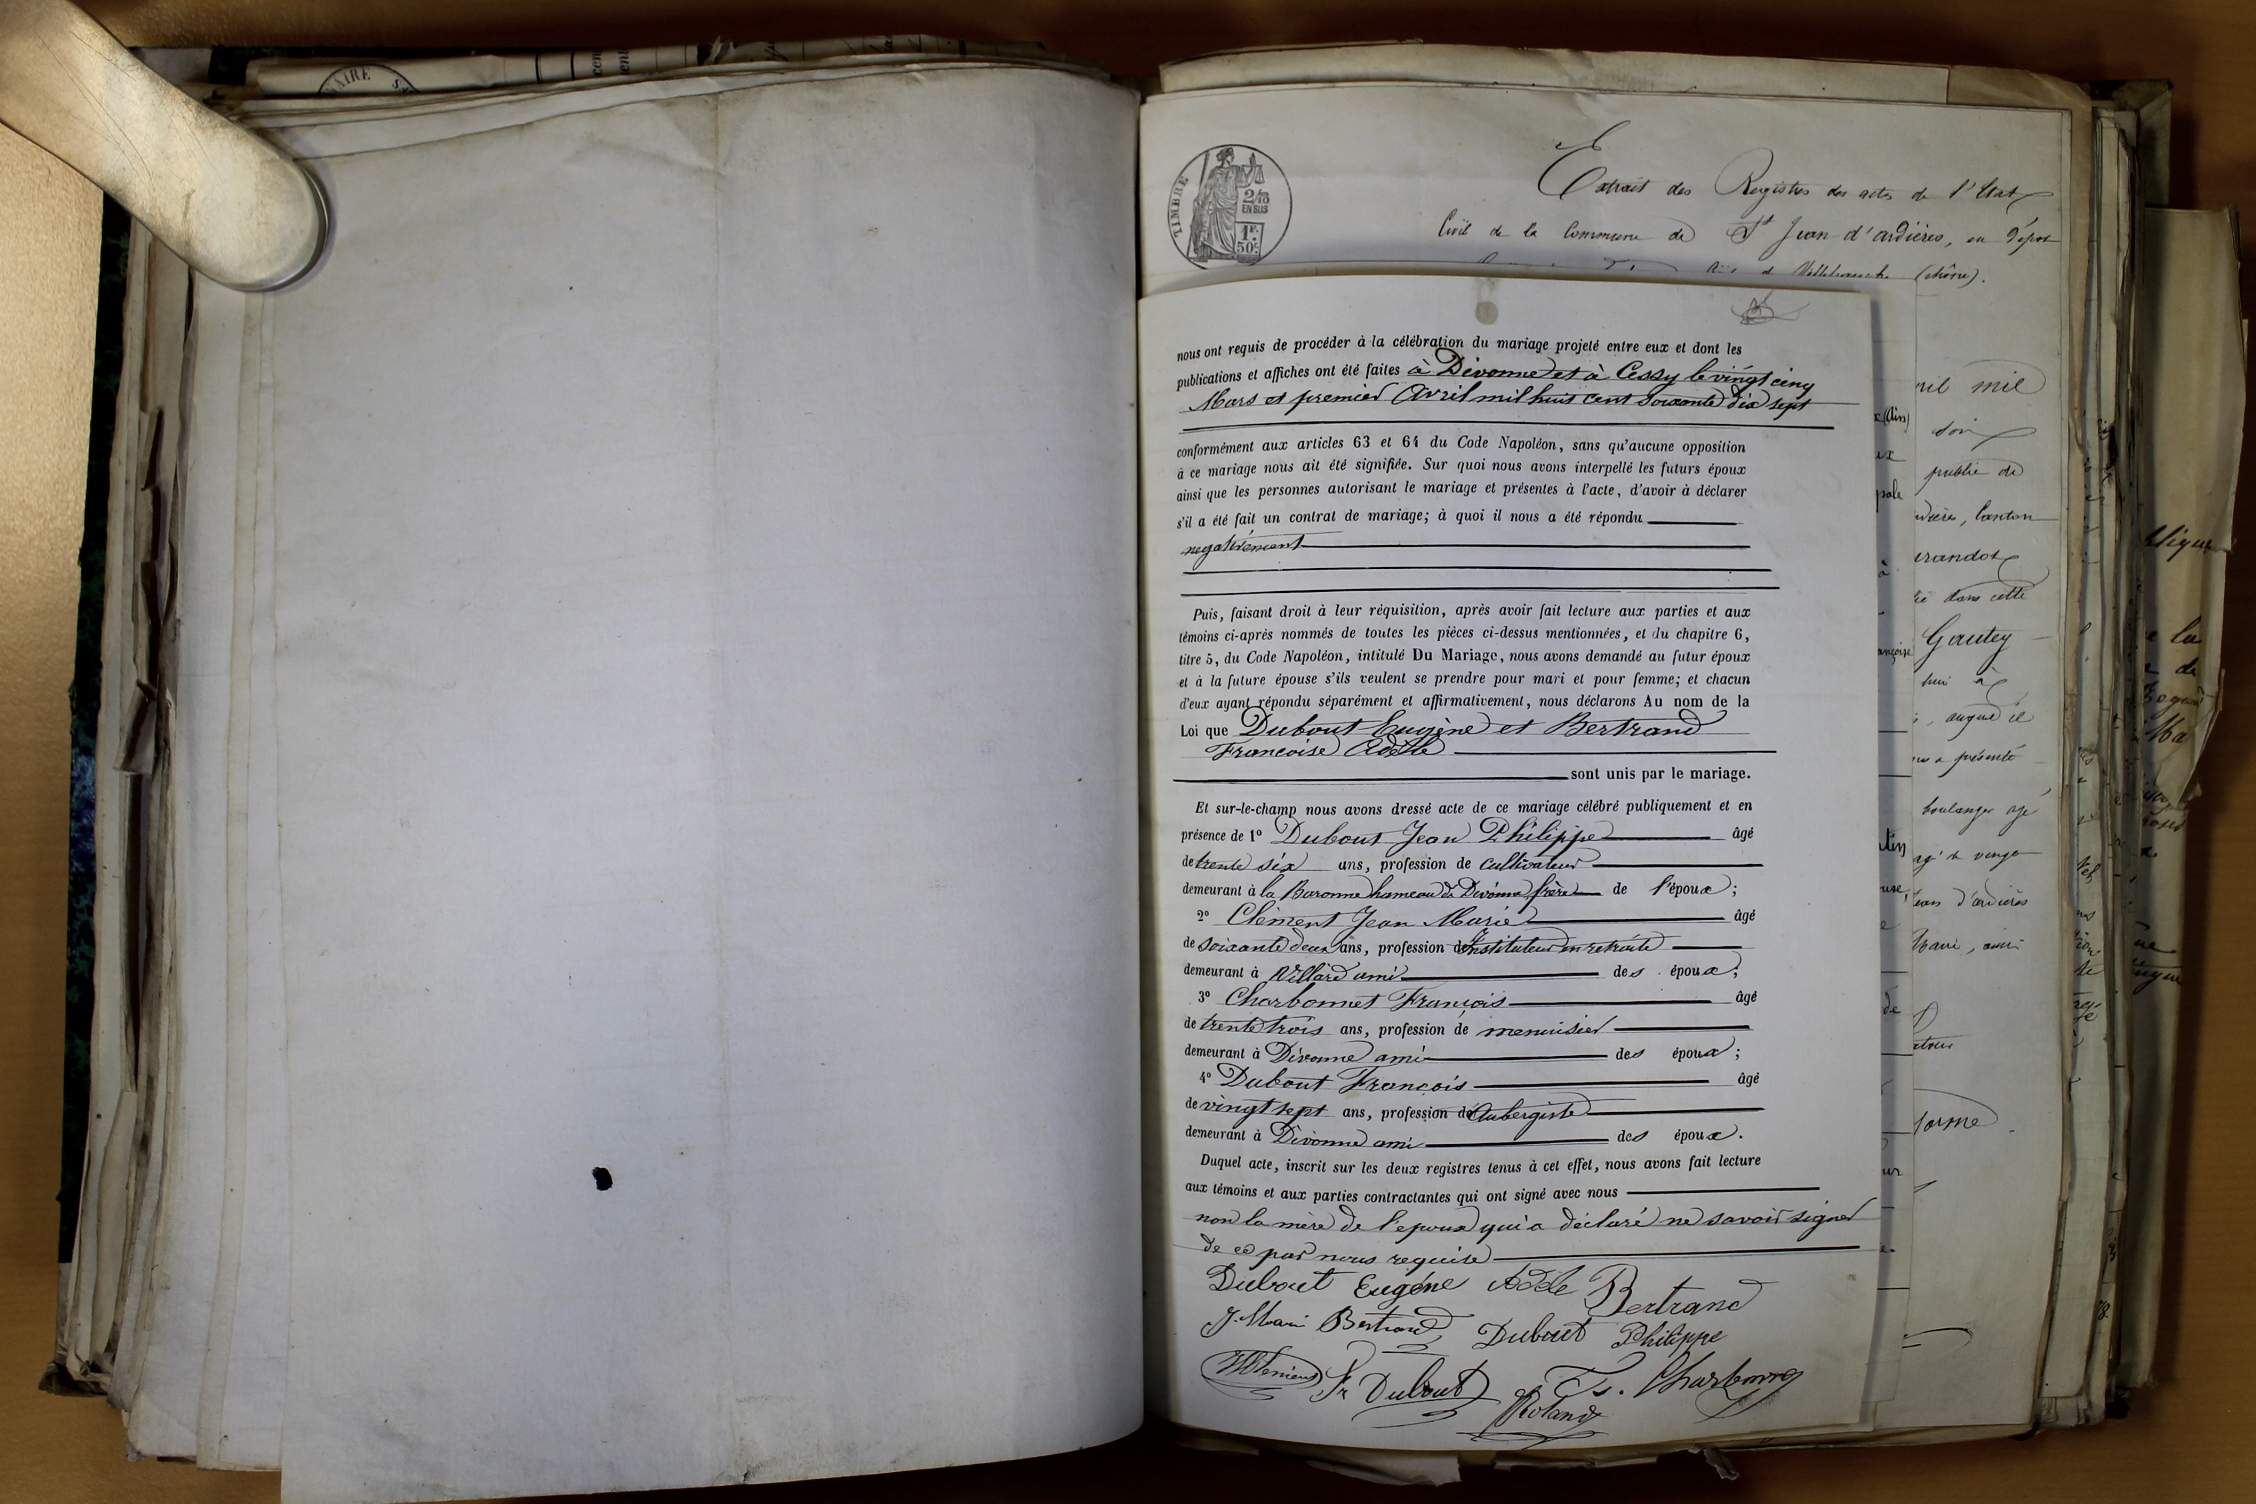 AIRE
TIMBRE
2/10
EN SUS
1F.
50c.
Extrait des Registres des actes de l'Etat
Civil de la Commune de St Jean d'ardières, en dépot
Villefranche (Rhône).
nous ont requis de procéder à la célébration du mariage projeté entre eux et dont les
publications et affiches ont été faites à Divonne et à Cessy le vingt cinq
Mars et premier Avril mil huit cent soixante dix sept
conformément aux articles 63 et 64 du Code Napoléon, sans qu'aucune opposition
à ce mariage nous ait été signifiée. Sur quoi nous avons interpellé les futurs époux
ainsi que les personnes autorisant le mariage et présentes à l'acte, d'avoir à déclarer
s'il a été fait un contrat de mariage; à quoi il nous a été répondu
negativement
Puis, faisant droit à leur réquisition, après avoir fait lecture aux parties et aux
témoins ci-après nommés de toutes les pièces ci-dessus mentionnées, et du chapitre 6,
titre 5, du Code Napoléon, intitulé Du Mariage, nous avons demandé au futur époux
et à la future épouse s'ils veulent se prendre pour mari et pour femme; et chacun
d'eux ayant répondu séparément et affirmativement, nous déclarons Au nom de la
Loi que Dubout Eugène et Bertrand
Francoise Adèle
sont unis par le mariage.
Et sur-le-champ nous avons dressé acte de ce mariage célébré publiquement et en
présence de 1° Dubout Jean Philippe âgé
de trente six ans, profession de cultivateur
demeurant à la Baronne hameau de Divonne frère de l'époux;
2° Clément Jean Marie âgé
de soixante deux ans, profession d'Instituteur en retraite
demeurant à Villard ami des époux;
3° Charbonnet François âgé
de trente trois ans, profession de menuisier
demeurant à Divonne ami des époux;
4° Dubout François âgé
de vingt sept ans, profession de Aubergiste
demeurant à Divonne ami des époux.
Duquel acte, inscrit sur les deux registres tenus à cet effet, nous avons fait lecture
aux témoins et aux parties contractantes qui ont signé avec nous
non la mère de l'epoux qui a déclaré ne savoir signer
de ce par nous requise
Dubout Eugéne Adèle Bertrand
J. Marie Bertrand Dubout Philippe
Fr Dubout Fs. Charbonnet
Roland
ril mil
publié de
dières, Canton
dans cette
Gautey
a présenté
boulanger agé
d'ardières
forme